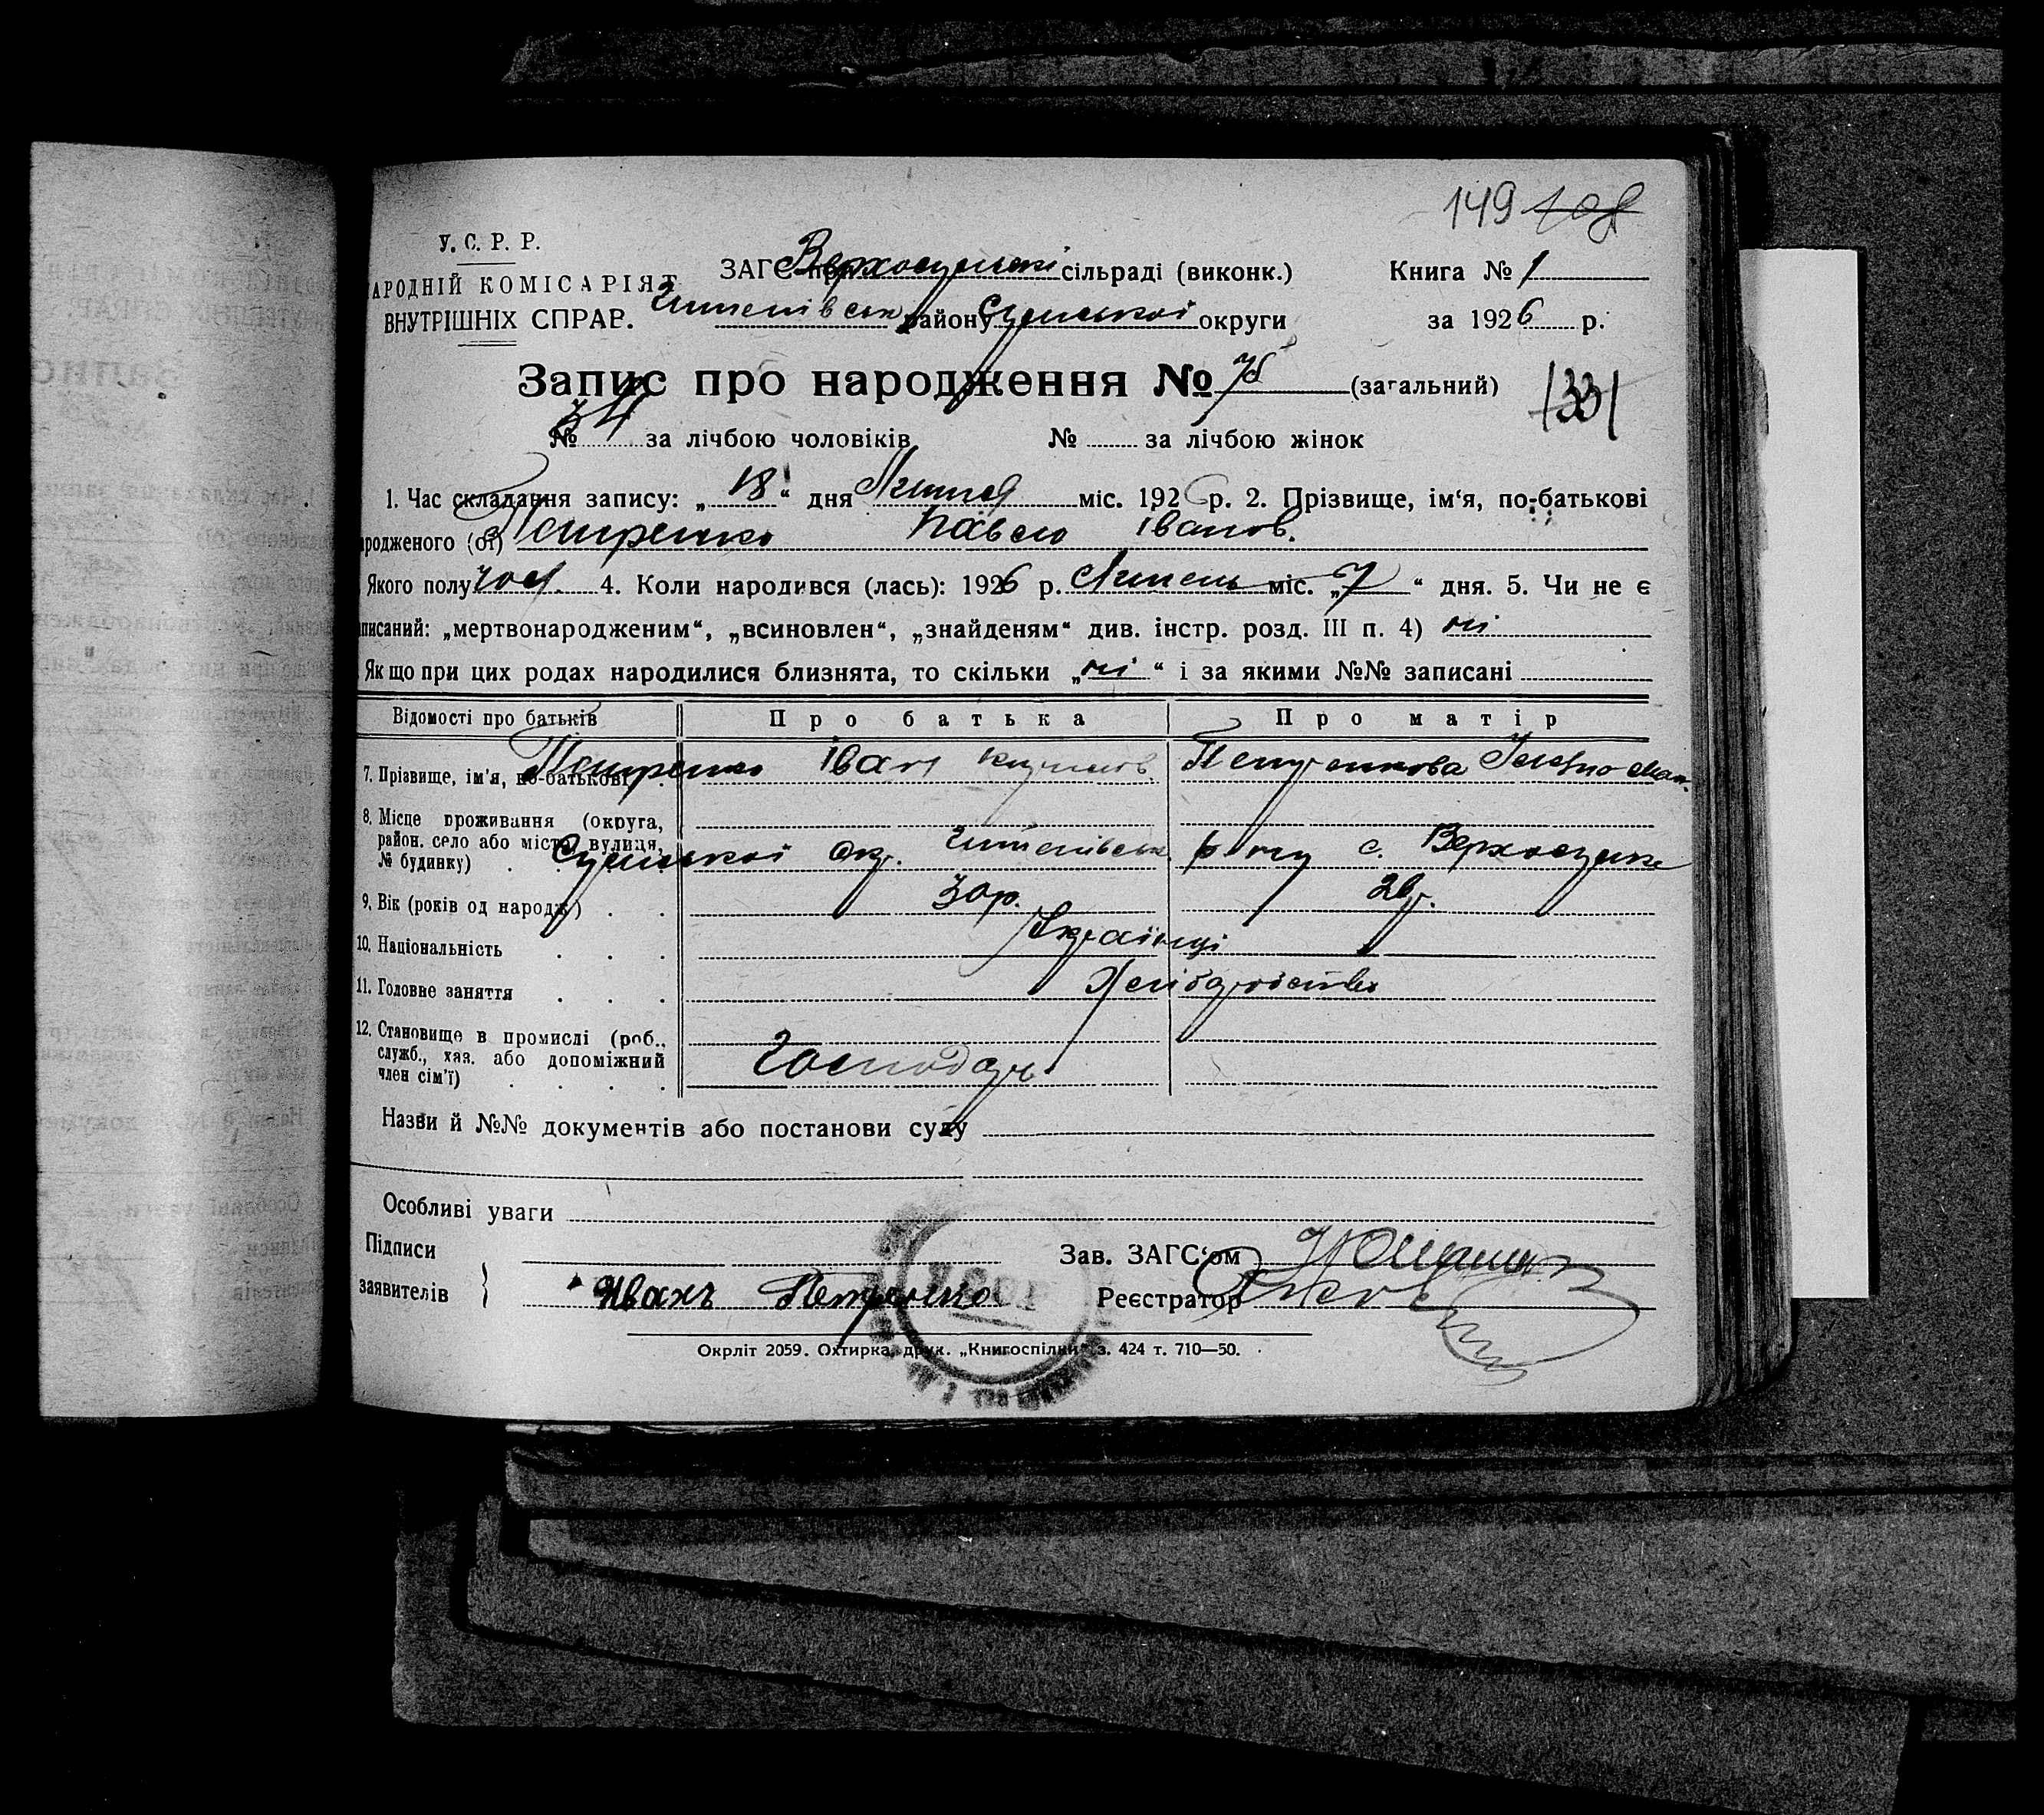 149 108
У. С. Р. Р.
АРОДНІЙ КОМІСАРІЯТ
ВНУТРІШНІХ СПРАВ.
ЗАГС при Верхосульські сільраді (виконк.)
Штепівськ району Сумської округи
Книга № 1
за 1926 р.
Запис про народження № 75 (загальний)
133
№ 34 за лічбою чоловіків № за лічбою жінок
1. Час складання запису: „18“ дня Липня міс. 1926 р. 2. Прізвище, ім‘я, по-батькові
родженого (ої) Петренко Павло Іванов.
Якого полу чол. 4. Коли народився (лась): 1926 р. Липень міс. „7“ дня. 5. Чи не є
писаний: „мертвонародженим“, „всиновлен“, „знайденям“ див. інстр. розд. III п. 4) ні
Якщо при цих родах народилися близнята, то скільки „ні“ і за якими №№ записані
Відомості про батьків Про батька Про матір
7. Прізвище, ім'я, по-батькові Петренко Іван Петренкова
8. Місце проживання (округа,
район. село або місто, вулиця,
№ будинку) Сумської окр. Штепівськ. р-ну с. Верхосулка
9. Вік (років од народж) 30 р. 26 р.
10. Національність Українці
11. Головне заняття Хліборобство
12. Становище в промислі (роб.,
служб., хаз. або допоміжний
член сім'ї) Господарь
Назви й №№ документів або постанови суду
Особливі уваги
Підписи
заявителів } Иванъ Петренко
Зав. ЗАГС‘ом
Реєстратор
Окрліт 2059. Охтирка, друк. „Книгоспілки“ з. 424 т. 710—50.